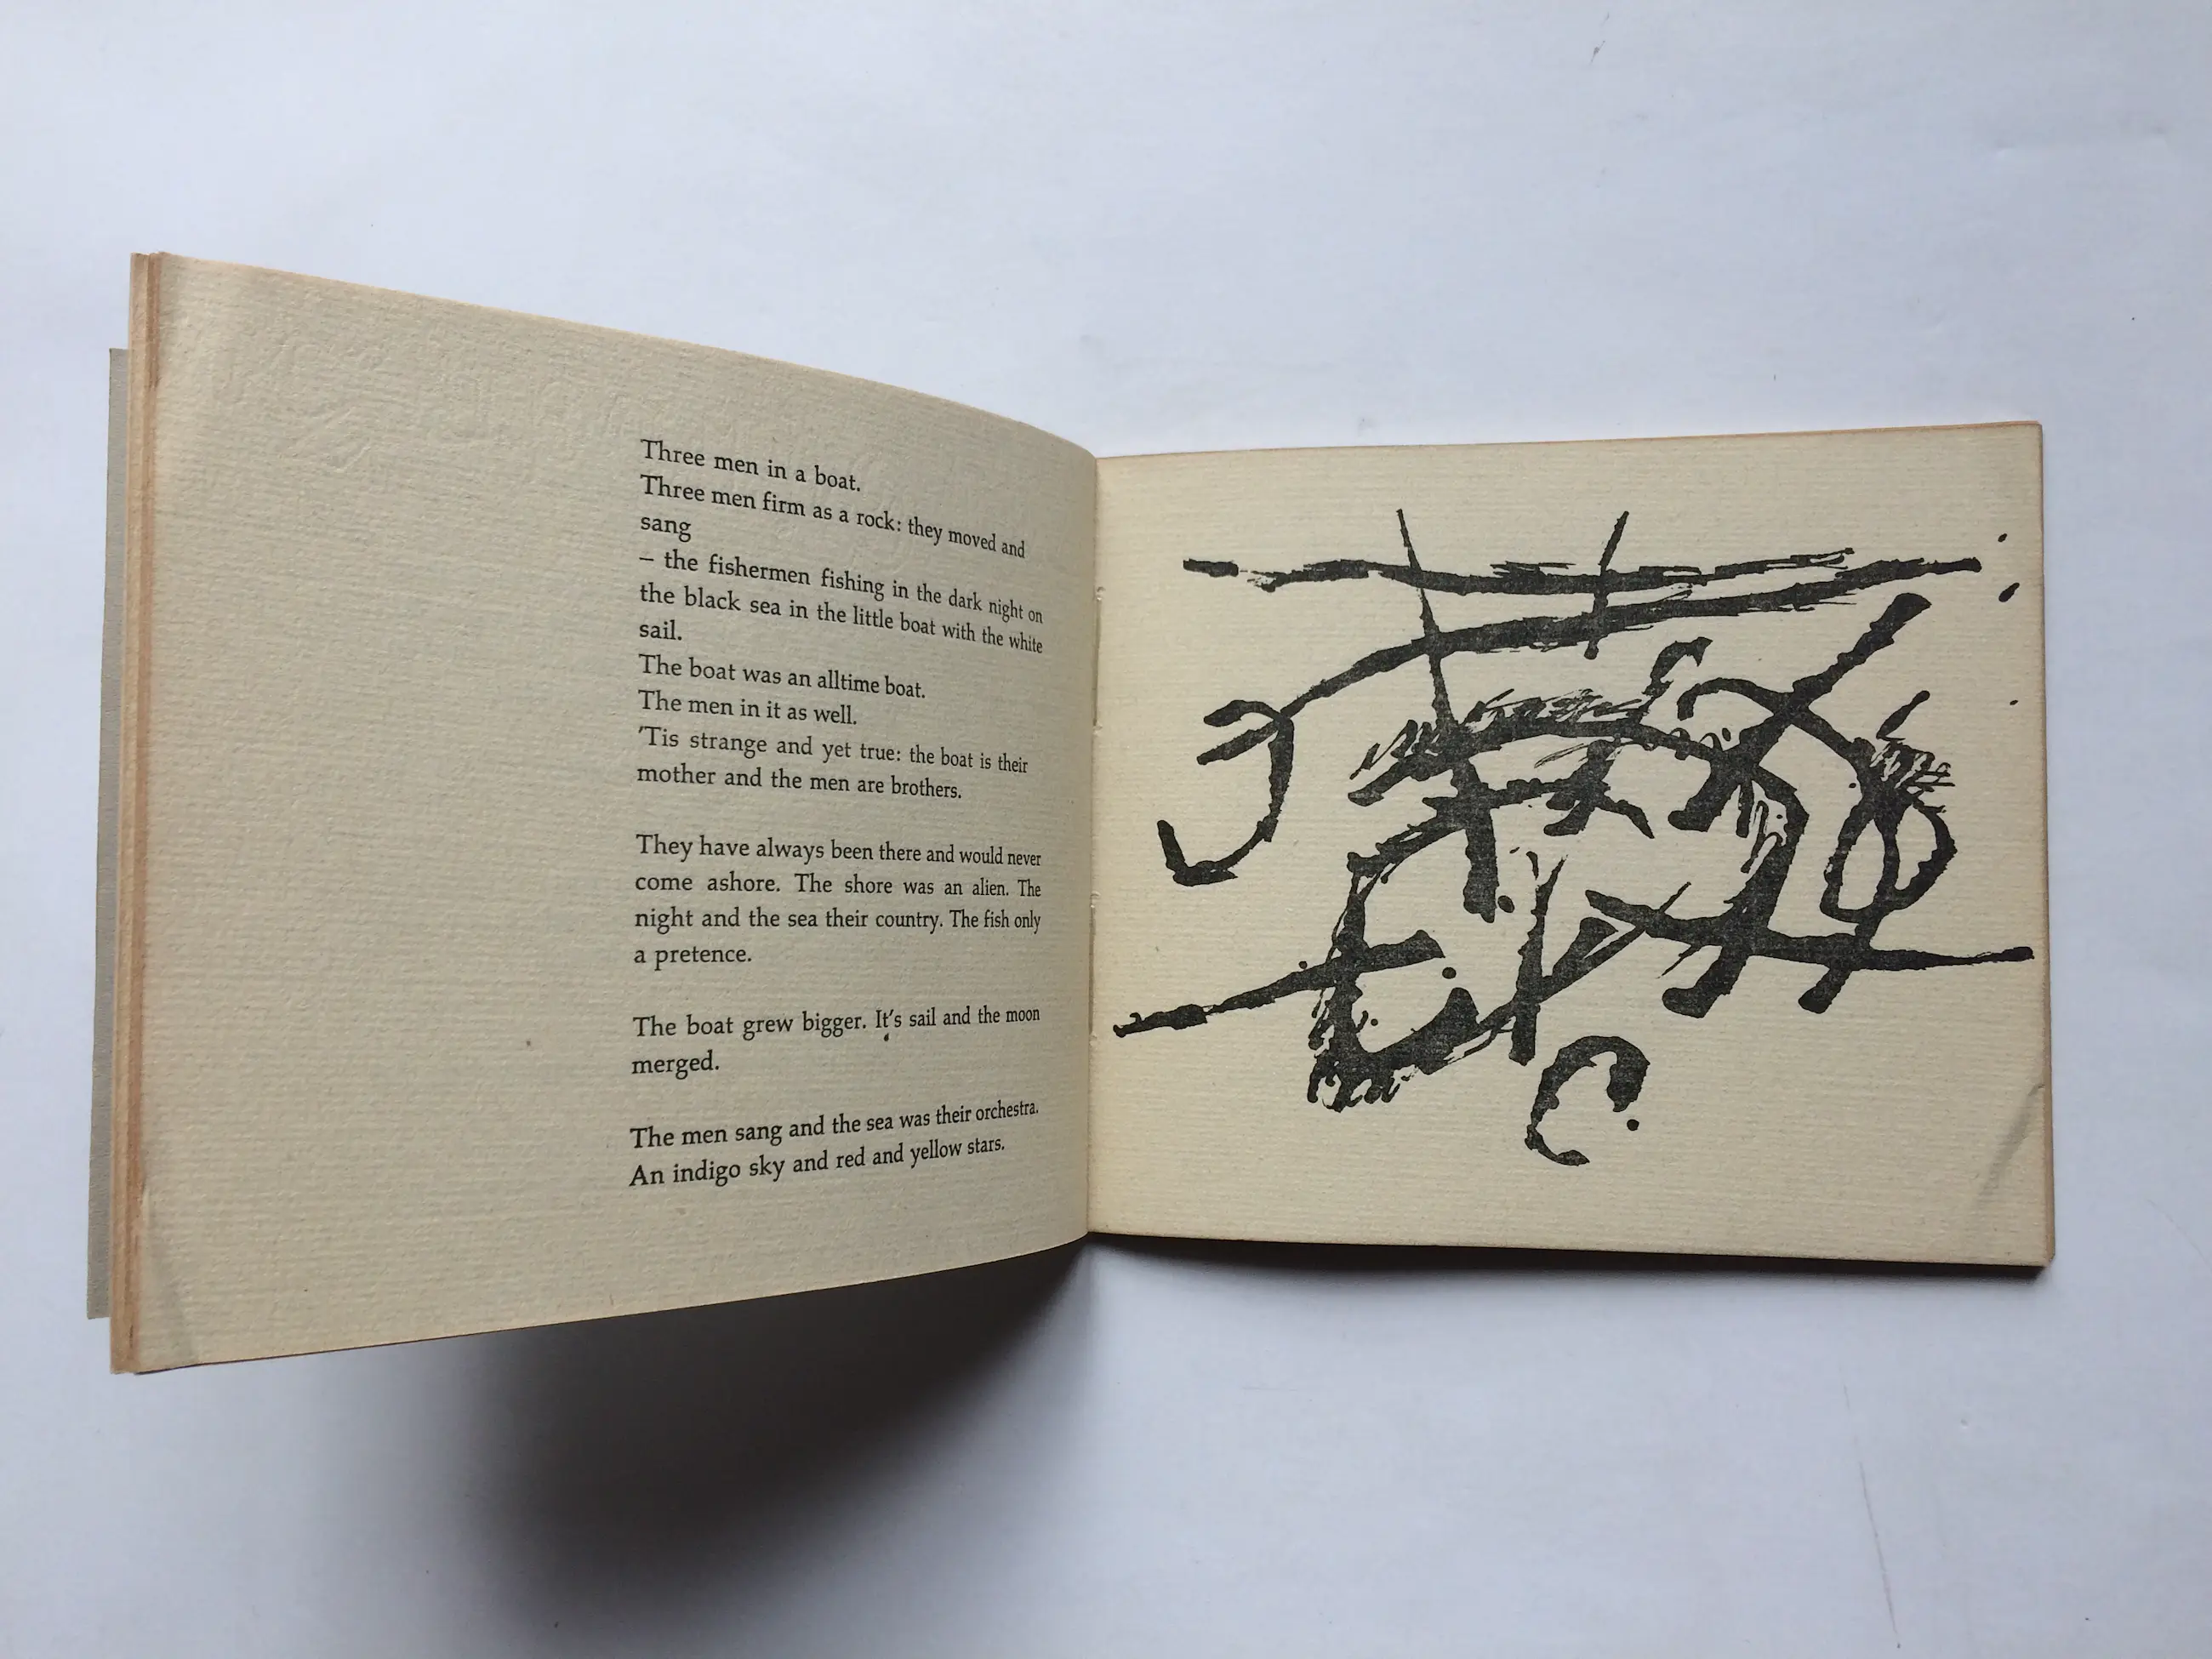 Three men in a boat.
Three men firm as a rock: they moved and
sang
– the fishermen fishing in the dark night on
the black sea in the little boat with the white
sail.
The boat was an alltime boat.
The men in it as well.
'Tis strange and yet true: the boat is their
mother and the men are brothers.
They have always been there and would never
come ashore. The shore was an alien. The
night and the sea their country. The fish only
a pretence.
The boat grew bigger. It's sail and the moon
merged.
The men sang and the sea was their orchestra.
An indigo sky and red and yellow stars.